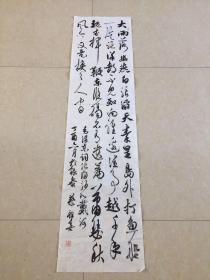 大雨落幽燕白浪滔天秦皇岛外打鱼船
一片汪洋都不见知向谁边往事越千年
魏武挥鞭东临碣石有遗篇萧瑟秋
风今又是换了人间
毛泽东词浪淘沙北戴河
丁酉六月